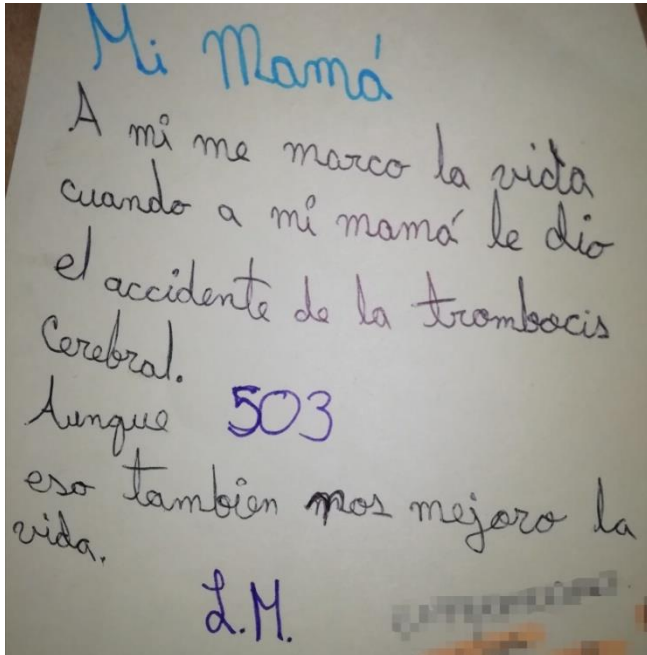 Mi Mamá
A mi me marco la vida
cuando a mi mamá le dio
el accidente de la trombocis
Cerebral.
Aunque 503
eso tambien nos mejoro la
vida.
L.M.